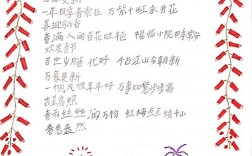 万象更新
一年四季春常在 万紫千红永开花
喜迎新春
春满人间百花吐艳 福临小院四季常
欢度春节
百世岁月 代好 千古江山 今朝新
万象更新
一帆风顺年年好 万事如意步步高
吉星高照
春雨丝丝 润万物 红梅点点 千山
春意盎然